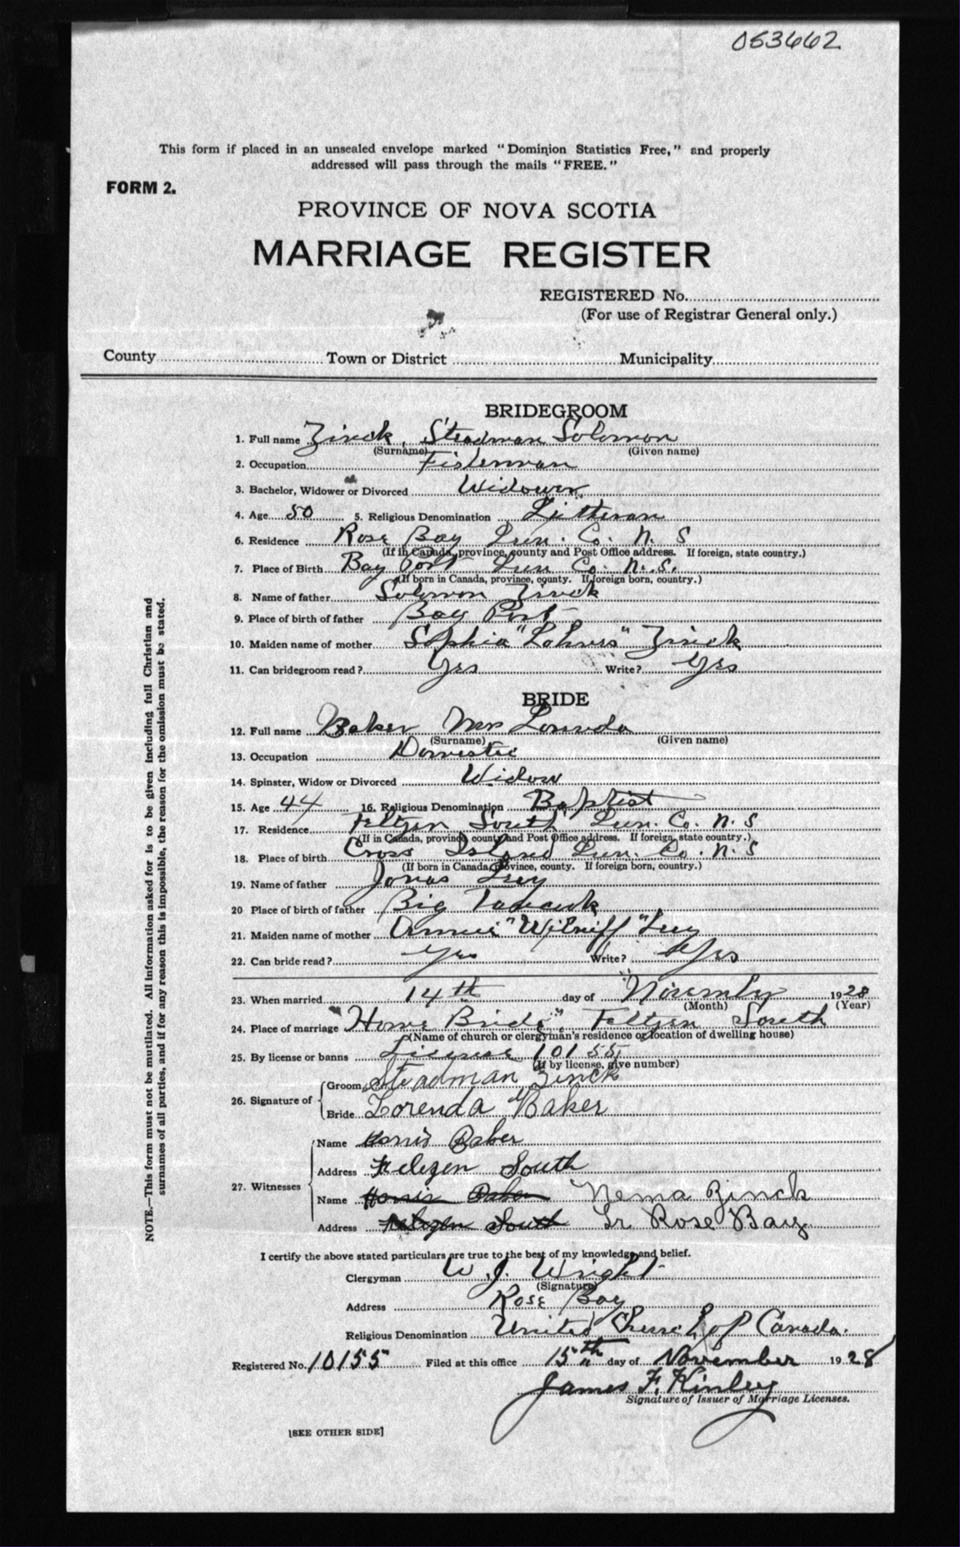 053662
This form if placed in an unsealed envelope marked "Dominion Statistics Free," and properly
addressed will pass through the mails "FREE."
FORM 2.
PROVINCE OF NOVA SCOTIA
MARRIAGE REGISTER
REGISTERED No.
(For use of Registrar General only.)
County Town or District Municipality
BRIDEGROOM
1. Full name Zinck, Steadman Solomon
(Surname) (Given name)
2. Occupation Fisherman
3. Bachelor, Widower or Divorced Widower
4. Age 50 5. Religious Denomination Lutheran
6. Residence Rose Bay Lun. Co. N. S
(If in Canada, province, county and Post Office address. If foreign, state country.)
7. Place of Birth Bay Port Lun Co. N.S.
(If born in Canada, province, county. If foreign born, country.)
8. Name of father Solomon Zinck
9. Place of birth of father Bay Port
10. Maiden name of mother Sophia "Lohnes" Zinck
11. Can bridegroom read? Yes Write? Yes
BRIDE
12. Full name Baker Mrs Lounda
(Surname) (Given name)
13. Occupation Domestic
14. Spinster, Widow or Divorced Widow
15. Age 44 16. Religious Denomination Baptist
17. Residence Feltzen South Lun. Co. N. S
(If in Canada, province, county and Post Office address. If foreign, state country.)
18. Place of birth Cross Island Lun. Co. N. S
(If born in Canada, province, county. If foreign born, country.)
19. Name of father Jonas Levy
20 Place of birth of father Big Tancook
21. Maiden name of mother Levy
22. Can bride read? Yes Write? Yes
23. When married 14th day of November 1928
(Month) (Year)
24. Place of marriage "Home Bride", Feltzen South
(Name of church or clergyman's residence or location of dwelling house)
25. By license or banns License 10155
(If by license, give number)
26. Signature of Groom Steadman Zinck
Bride Lorenda Baker
27. Witnesses
Name Harris Baker
Address Feltzen South
Name Harris Baker Nema Zinck
Address Feltzen South Lr Rose Bay
I certify the above stated particulars are true to the best of my knowledge and belief.
Clergyman W. J. Wright
(Signature)
Address Rose Bay
Religious Denomination United Church of Canada.
Registered No. 10155 Filed at this office 15th day of November 1928
James F. Kinley
Signature of Issuer of Marriage Licenses.
[SEE OTHER SIDE]
NOTE.—This form must not be mutilated. All information asked for is to be given including full Christian and
surnames of all parties, and if for any reason this is impossible, the reason for the omission must be stated.